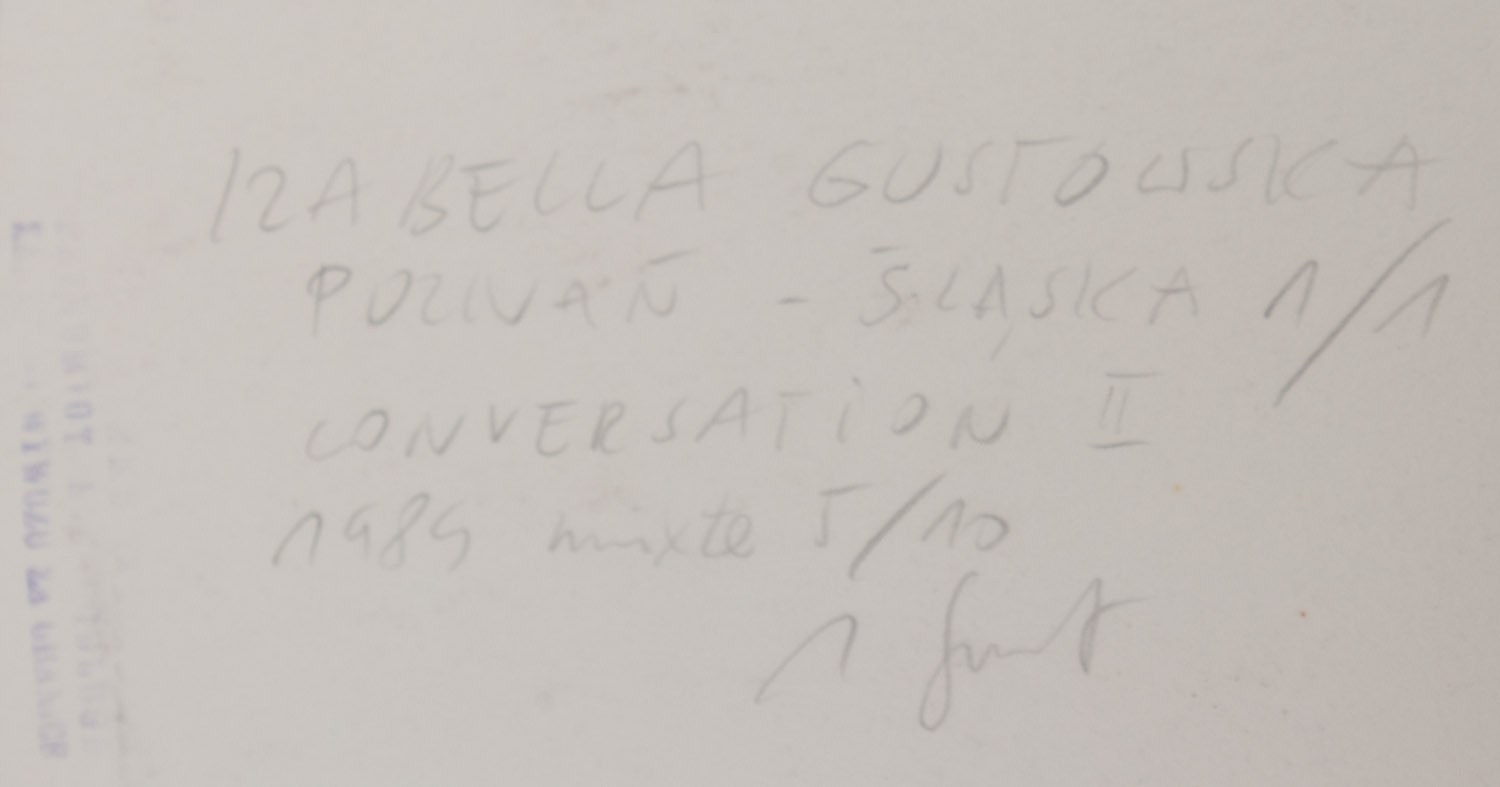 IZABELLA GUSTOWSKA
POZNAŃ - ŚLĄSKA 1/1
CONVERSATION II
1984 mixte 5/10